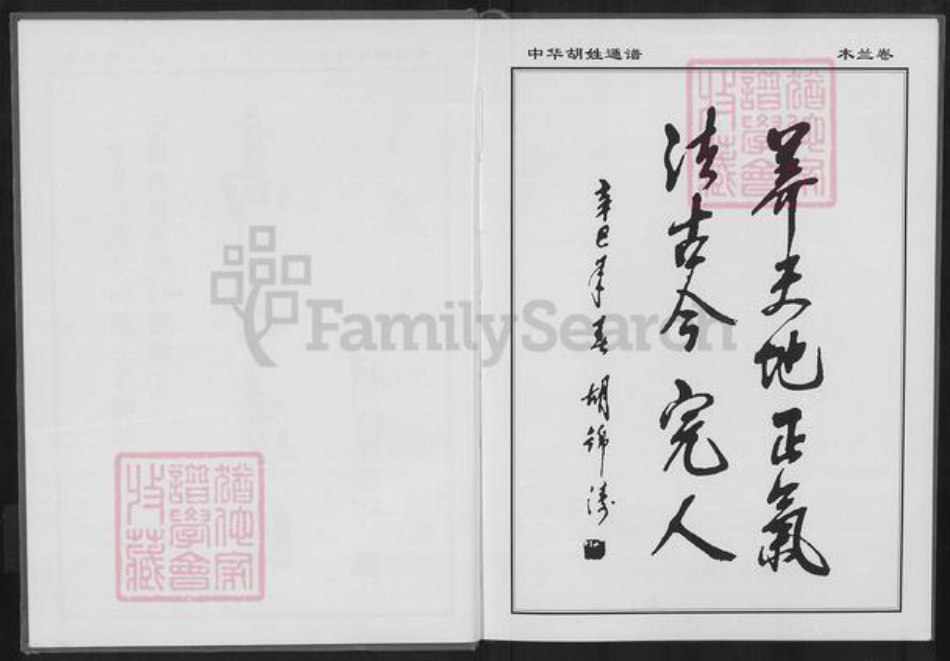 中华胡姓通谱
木兰卷
养天地正氣
法古今完人
辛巳年春 胡錦涛
猶他家譜學會收藏
猶他家譜學會收藏
FamilySearch